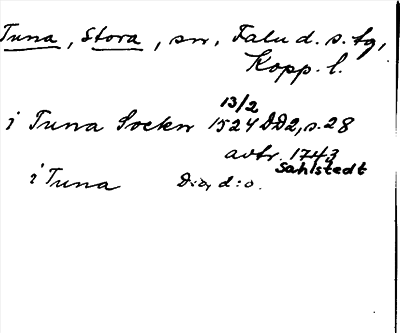 Tuna, Stora, sn, Falu d. s. fg,
Kopp. l.
13/2
i Tuna Sockn 1524 DD2, s. 28
avtr. 1743
Sahlstedt
i Tuna D:o, d:o.